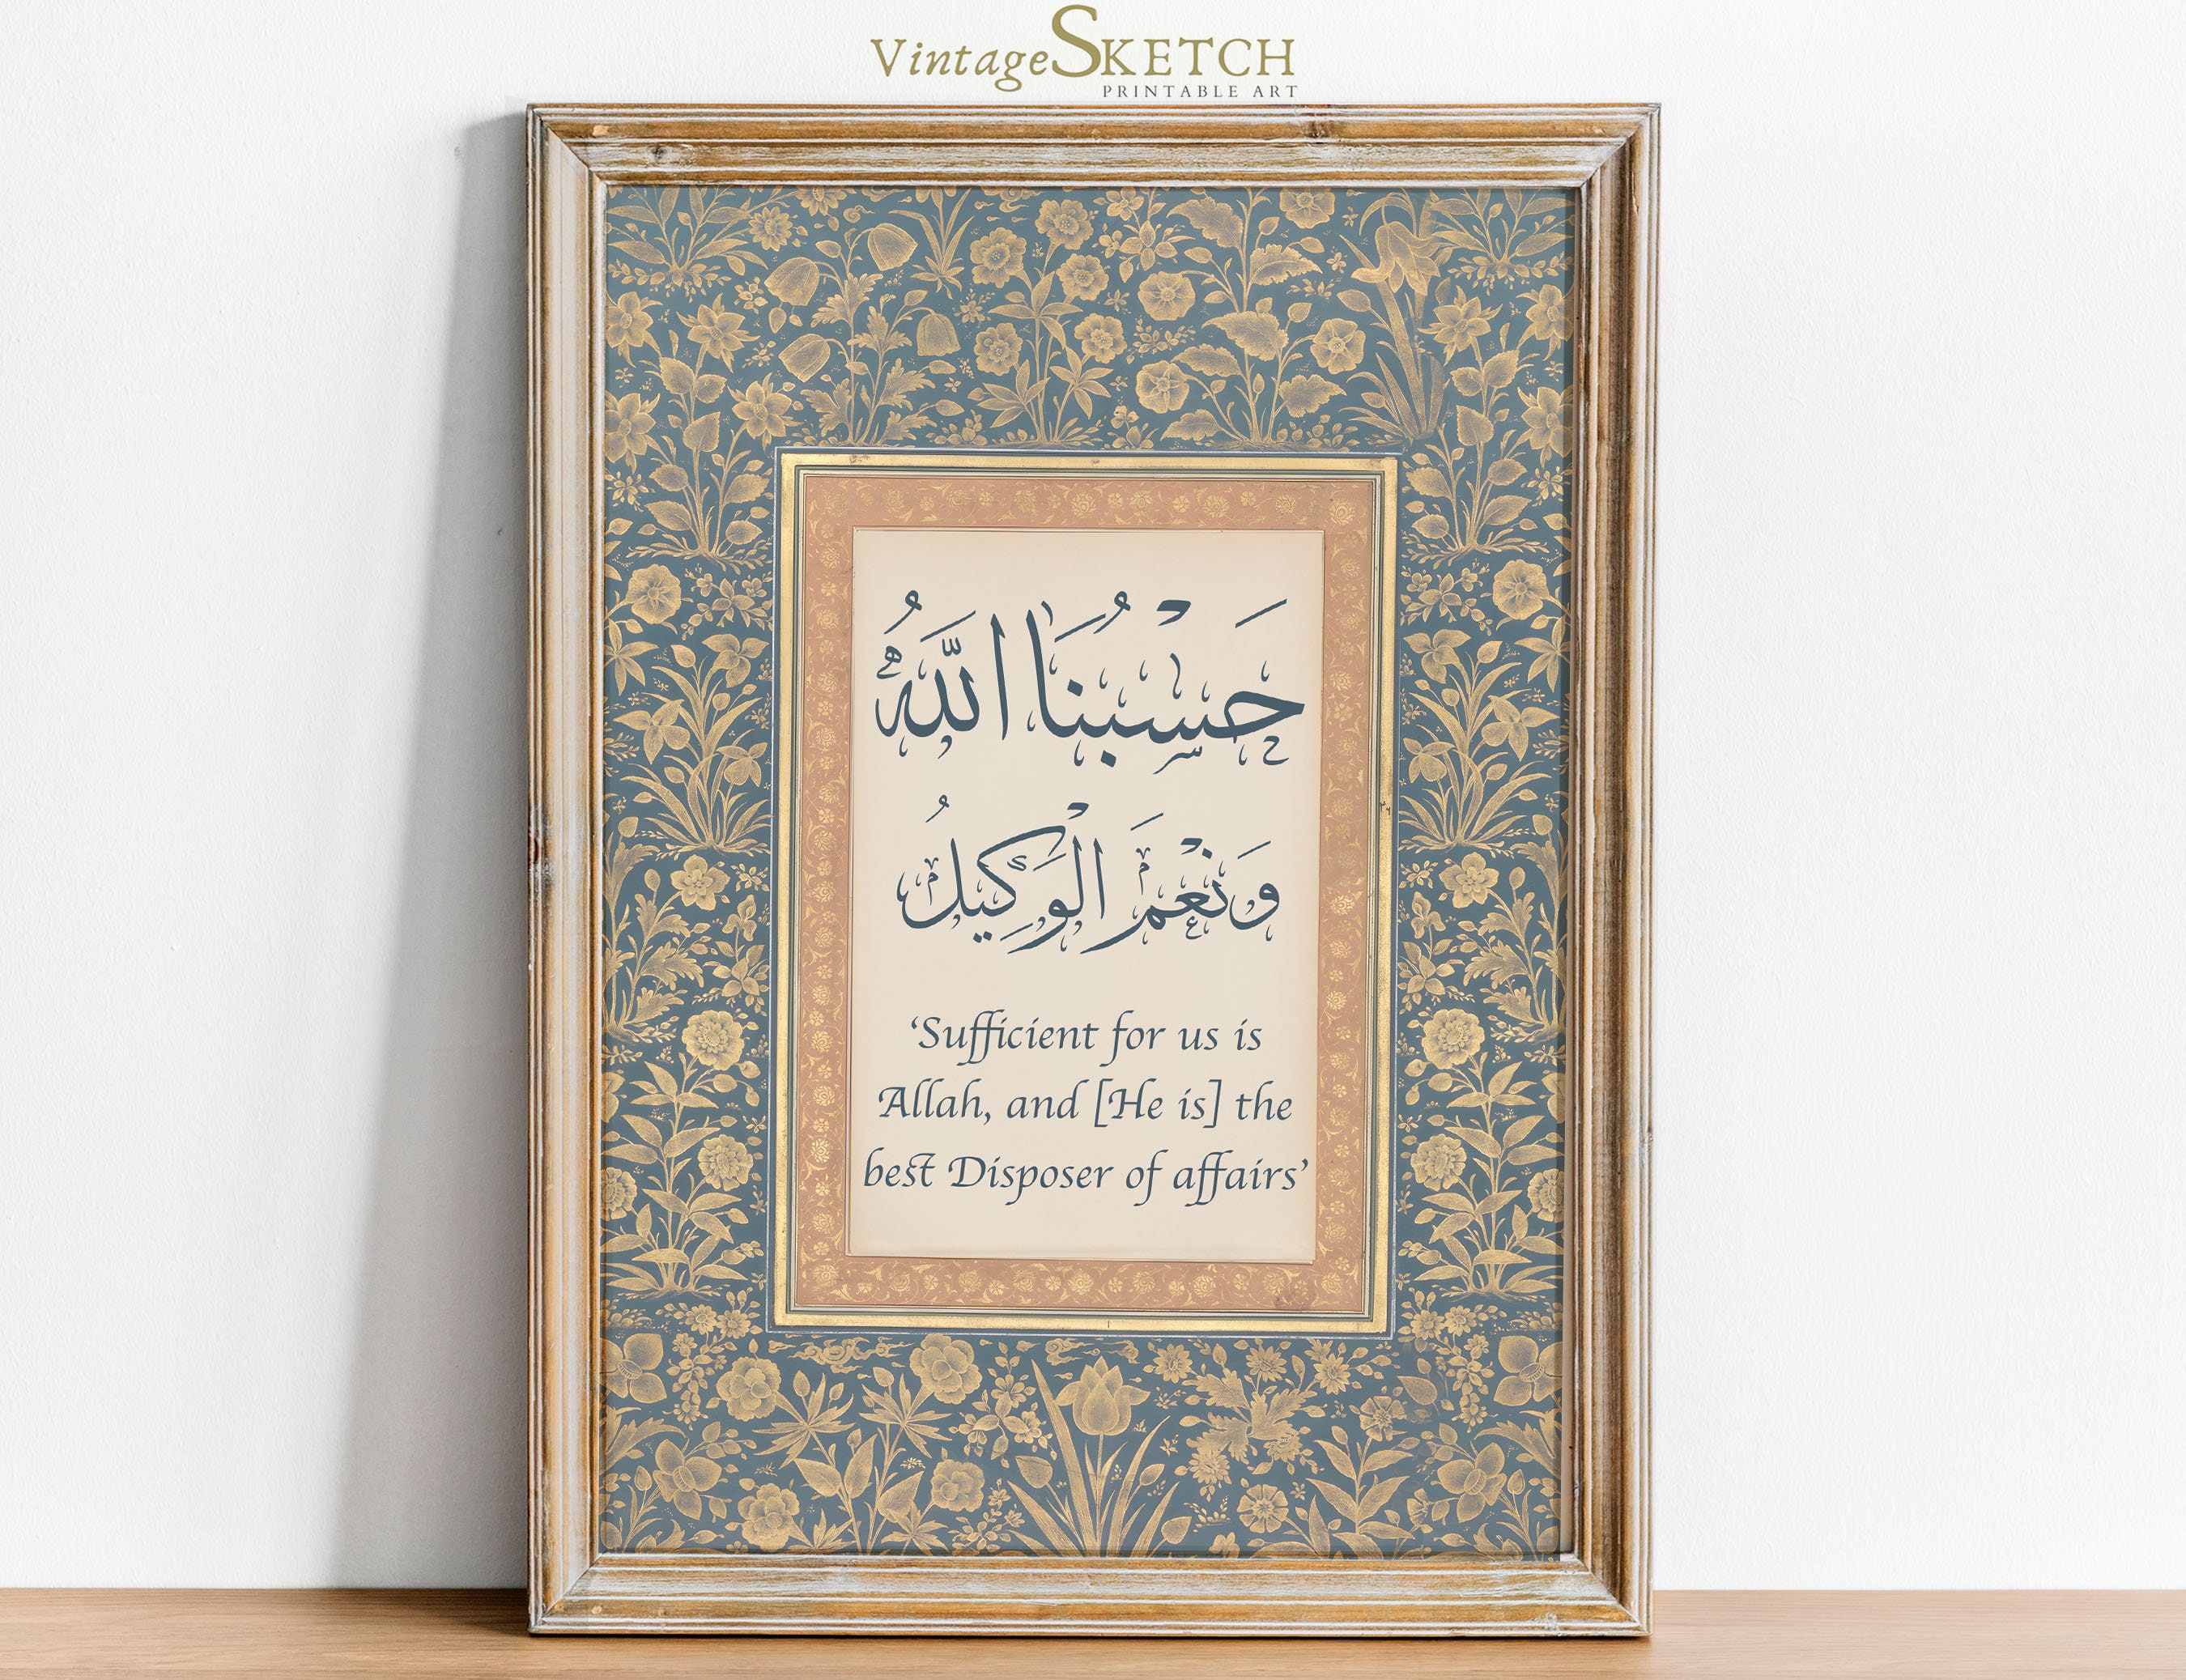 VintageSKETCH
PRINTABLE ART
حَسْبُنَا اللَّهُ
وَنِعْمَ الْوَكِيلُ
‘Sufficient for us is
Allah, and [He is] the
best Disposer of affairs’